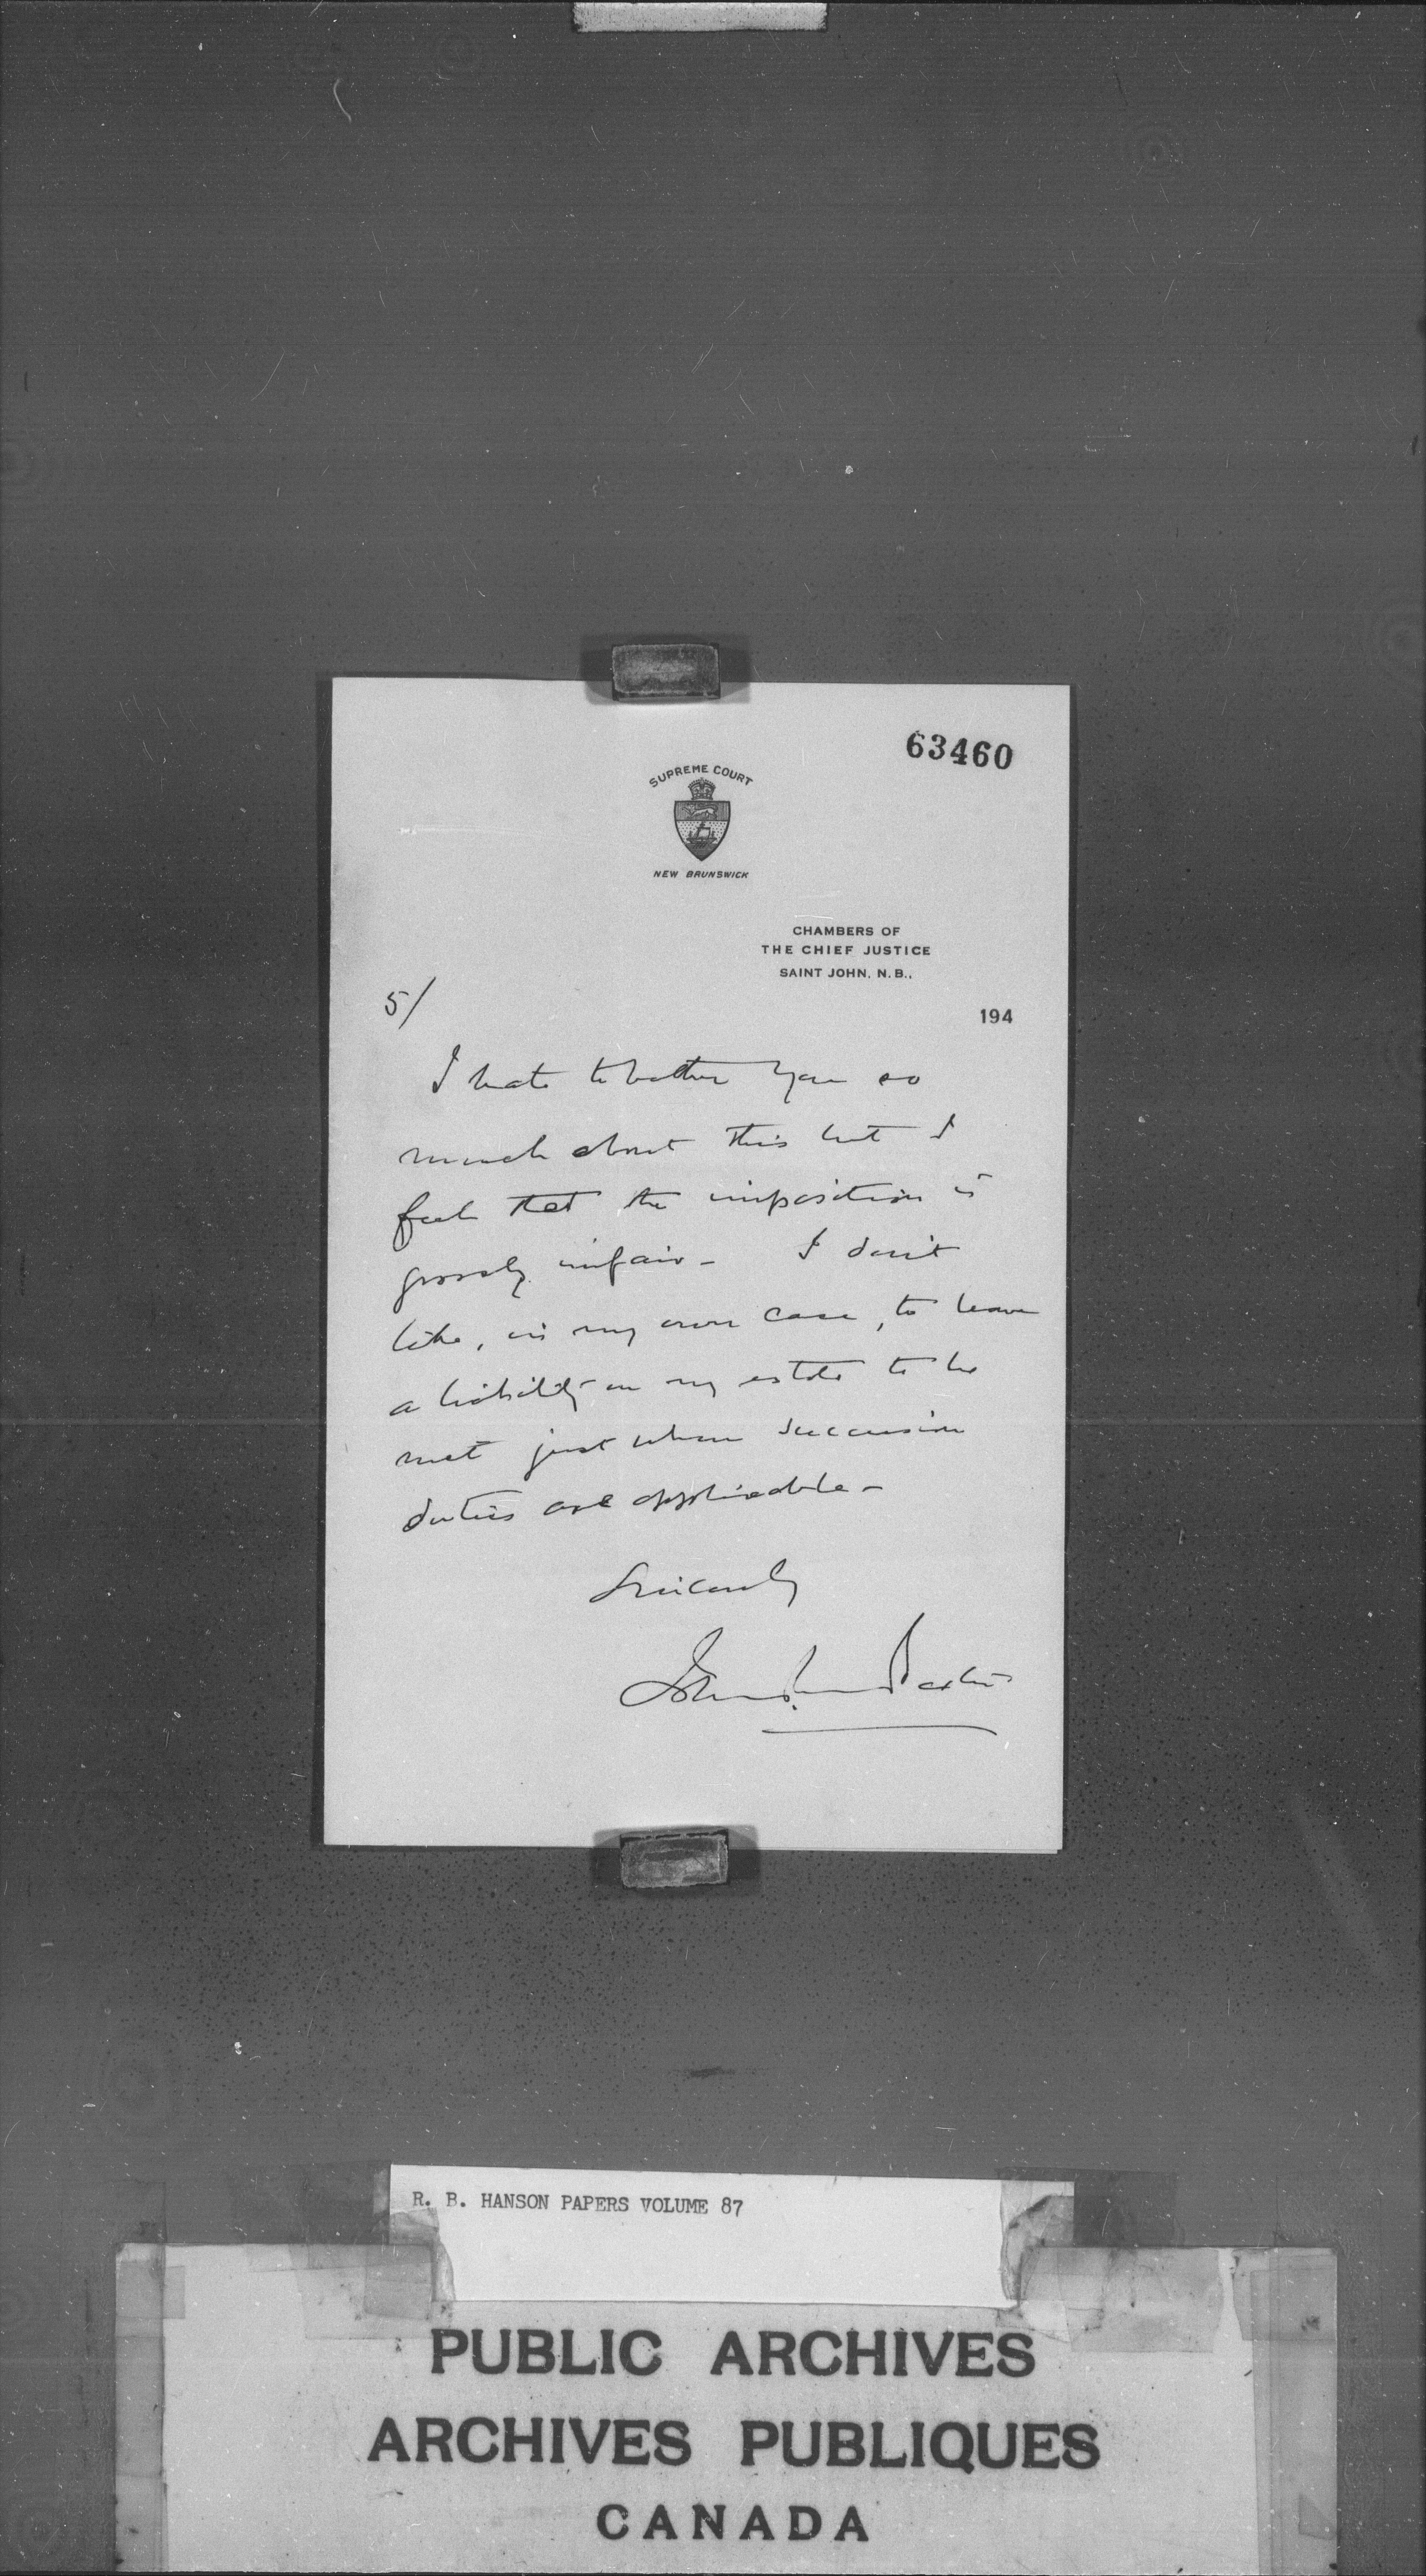 63460
SUPREME COURT
NEW BRUNSWICK
CHAMBERS OF
THE CHIEF JUSTICE
SAINT JOHN, N.B.,
194
5/
I hate to bother you so
much about this but I
feel that the imposition is
grossly unfair - I don't
like, in my own case, to leave
a liability on my estate to be
met just when succession
duties are applicable -
Sincerely
John Baxter
R. B. HANSON PAPERS VOLUME 87
PUBLIC ARCHIVES
ARCHIVES PUBLIQUES
CANADA